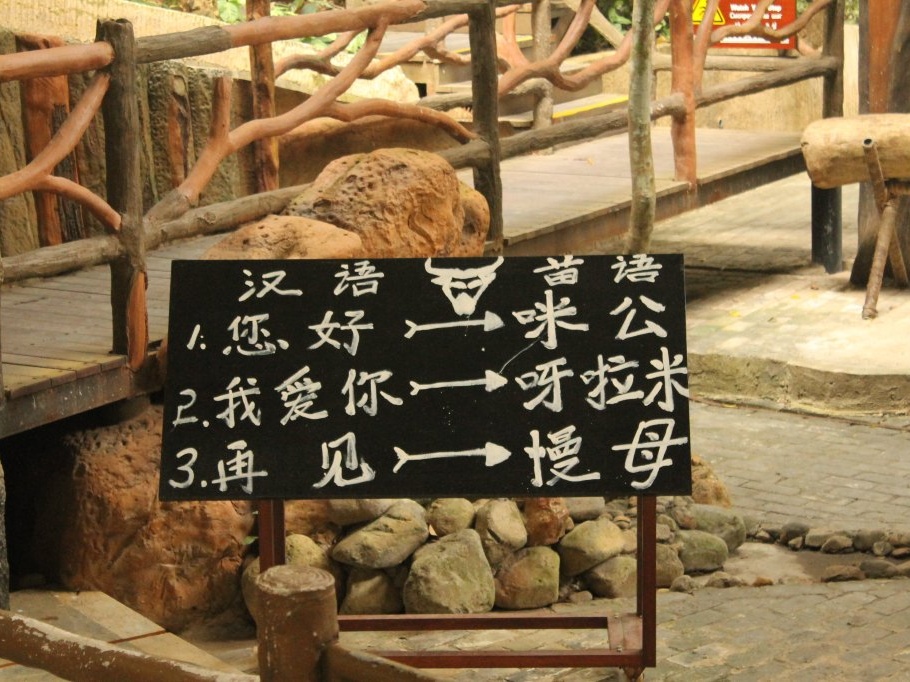 Watch Your Step
汉语 苗语
1. 您好 → 咪公
2. 我爱你 → 呀啦米
3. 再见 → 慢母